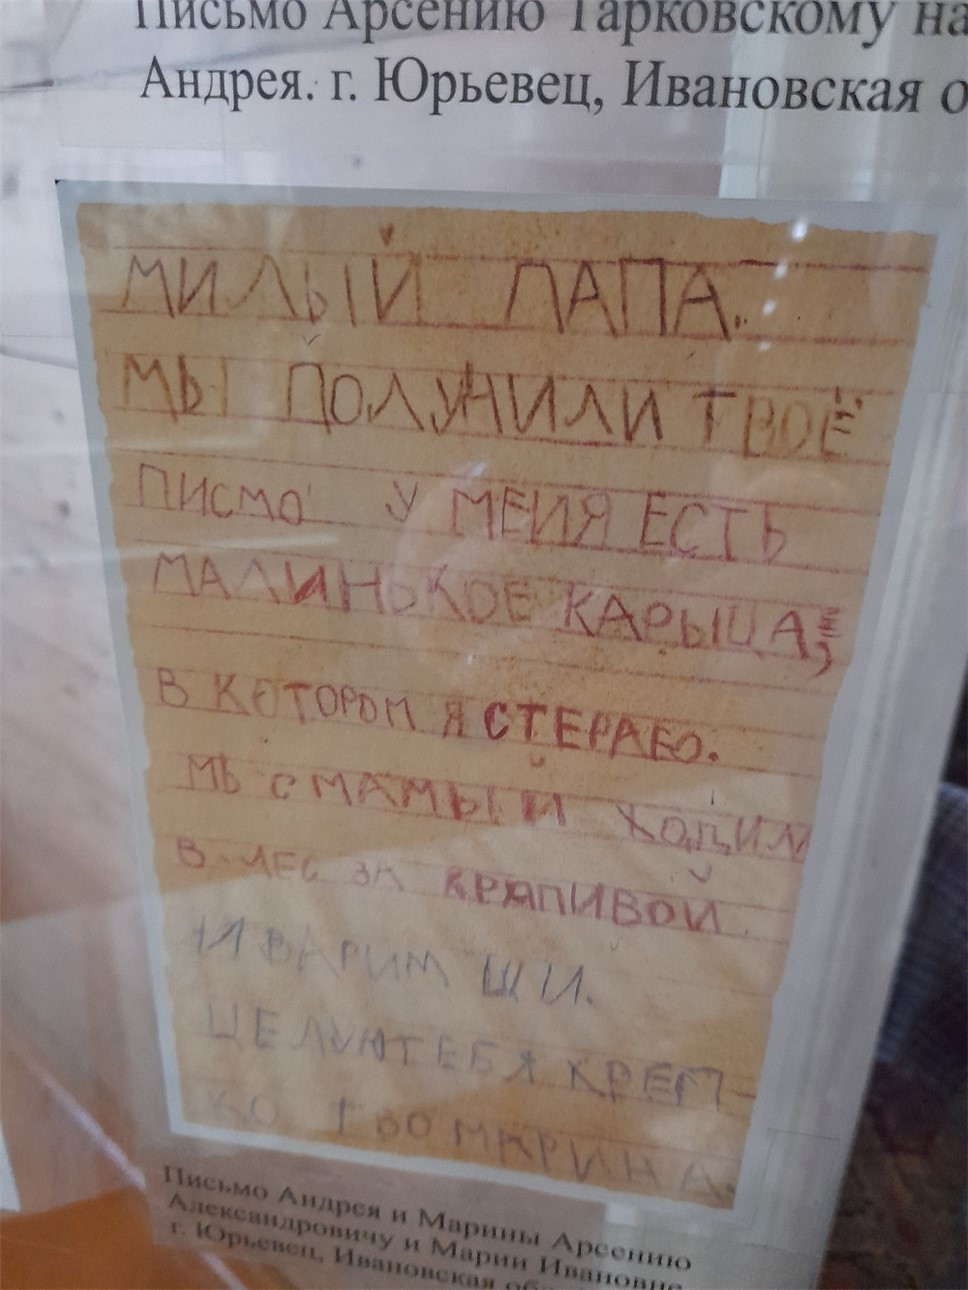 Письмо Арсению Тарковскому на
Андрея. г. Юрьевец, Ивановская о
МИЛЫЙ ПАПА.
МЫ ПОЛУЧИЛИ ТВОЁ
ПИСМО У МЕНЯ ЕСТЬ
МАЛИНЬКОЕ КАРЫЦА,
В КОТОРОМ Я СТЕРАЮ.
МЬ С МАМЫЙ ХОДИМ
В ЛЕС ЗА КРЯПИВОЙ
И ВАРИМ ЩИ.
ЦЕЛУЮ ТЕБЯ КРЕП-
КО ТВО МАРИНА.
Письмо Андрея и Марины Арсению
Александровичу и Марии Ивановне
г. Юрьевец, Ивановская об